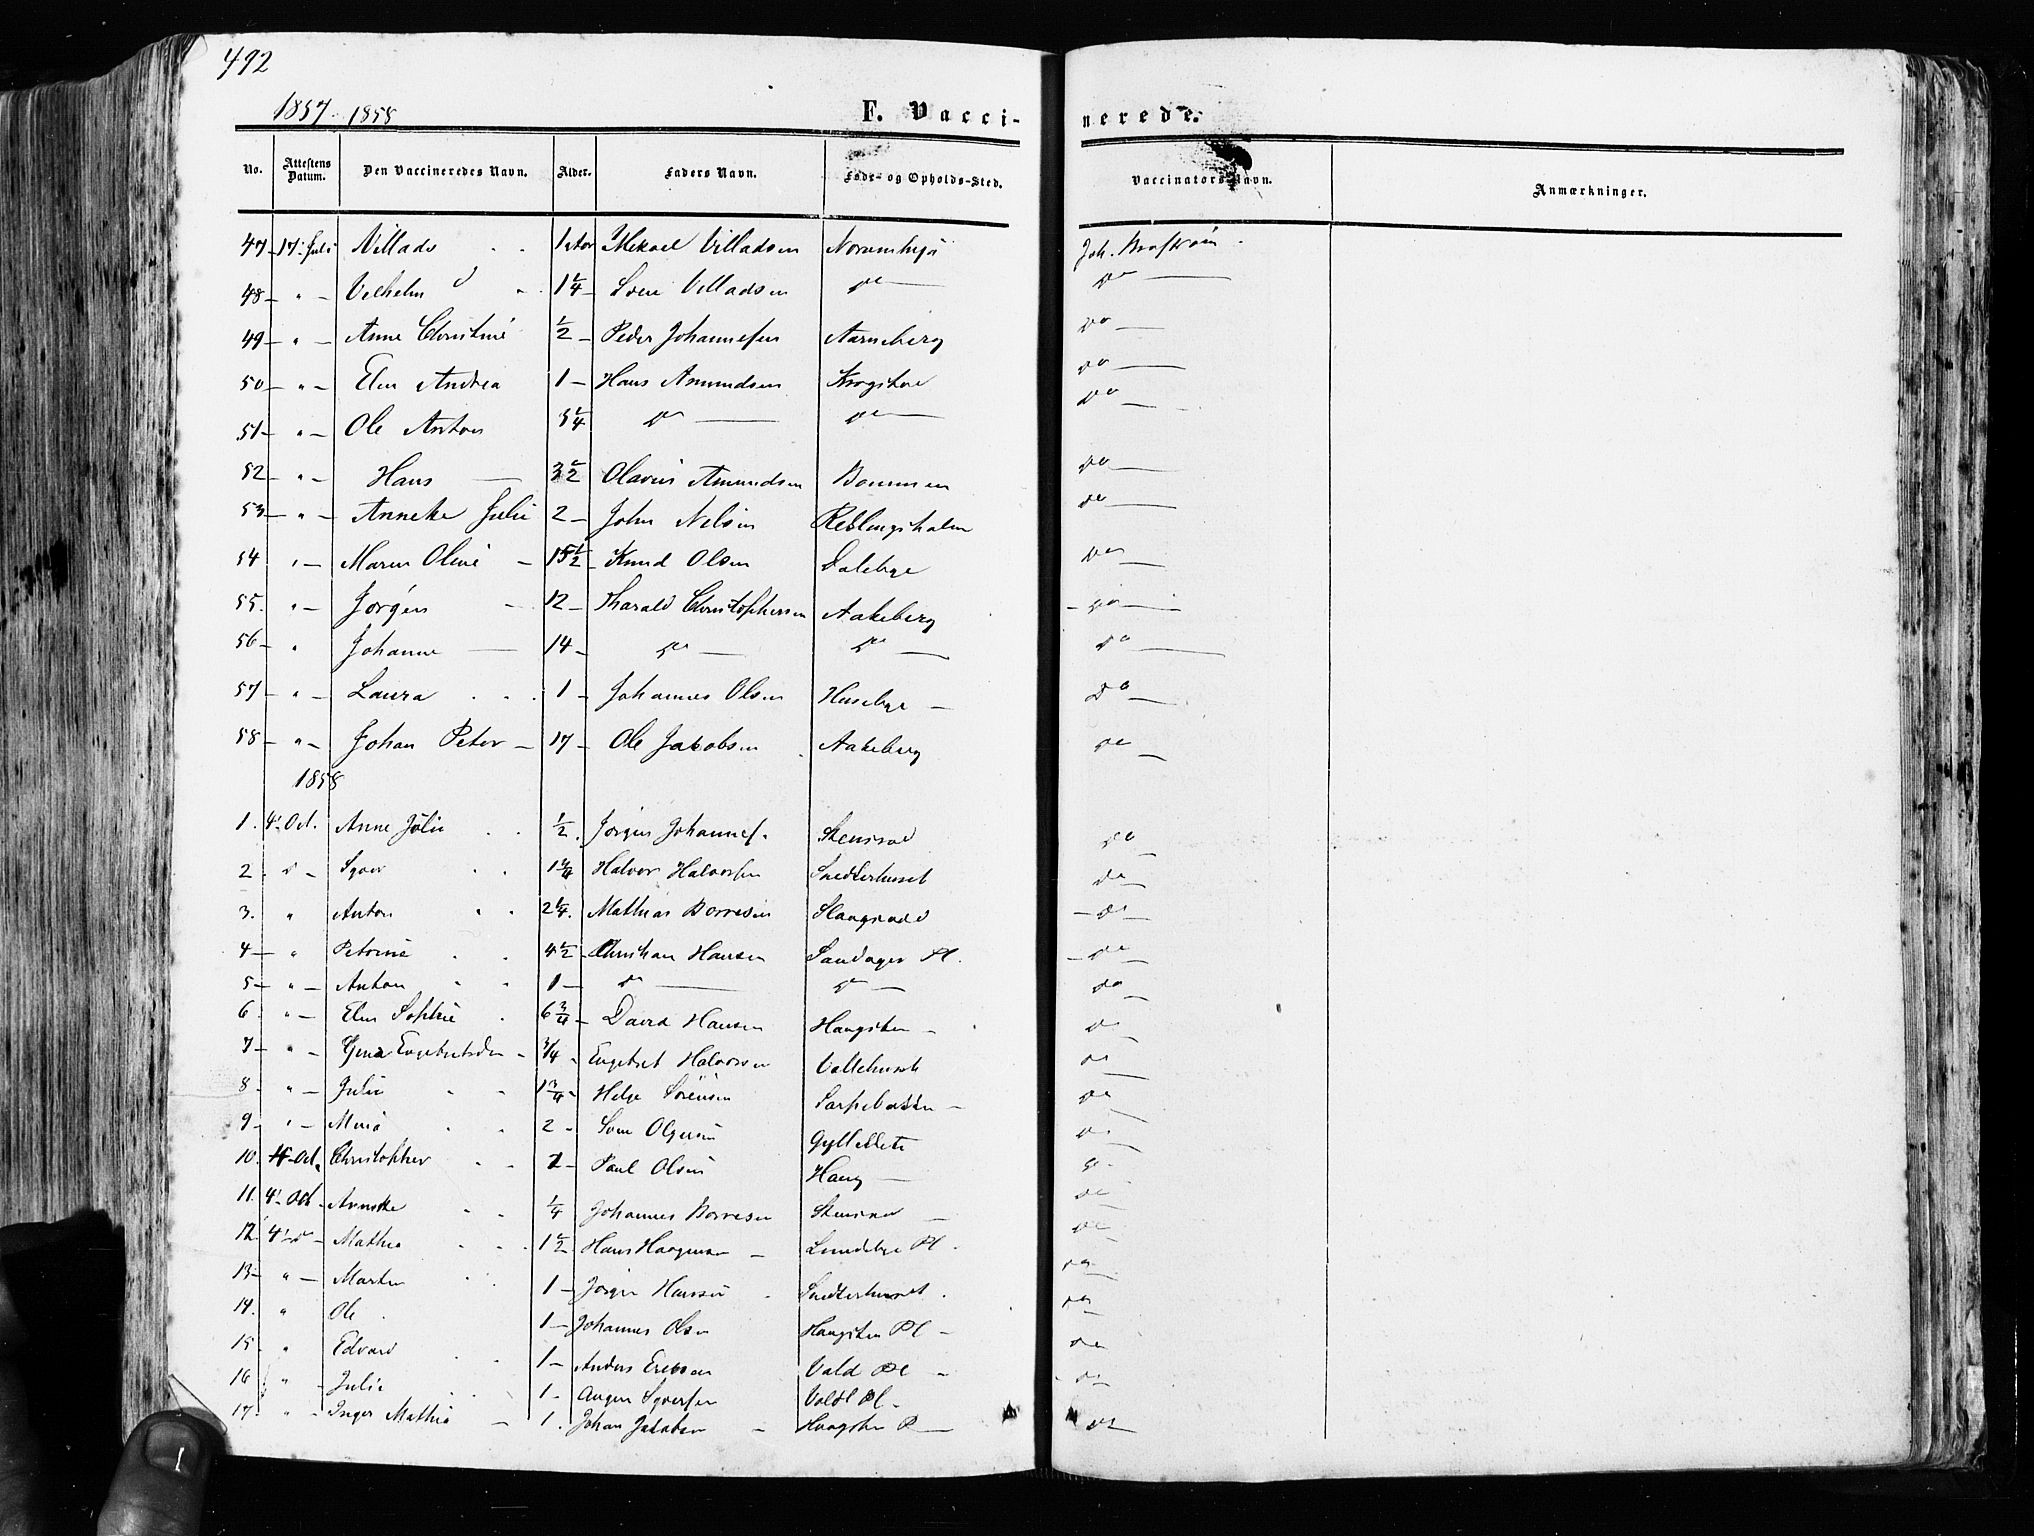 492
1857. 1858
F. Vaccinerede.
No. Attestens Datum. Den Vaccineredes Navn. Alder. Faders Navn. Føde- og Opholds-Sted. Vaccinators Navn. Anmærkninger.
47 - 17 Juli Villads 1 Aar Mikael Villadsen Norumhyi Joh.
48 - " - Vilhelm 1 1/4 - Villadsen do do
49 - " - Anne Christine 1/2 - Peder Johannesen Aarneberg do
50 - " - Elen Andrea 1 - Hans Amundsen Krogstad do
51 - " - Ole Anton do do do
52 " - Hans Olavus Amundsen Bommen do
53 - " - Anneke Julie 2 - John Nelsen Reblingsholm do
54 " - Maren Oline - 15 1/2 - Knud Olsen Dalebye do
55. " - Jørgen 12 - Harald Christophersen Aakeberg do
56 - " Johanne 14 - do do do
57 - " - Laura 1 - Johannes Olsen Husebye do
58 - " - Johan Peter - 17 - Ole Jakobsen Aakeberg do
1858
1. 4 Oct. Anne Julie 1/2 Jørgen Johannes. Stensrod do
2 d - Syver Halvor Halvorsen Snedkerhuset do
3. " Anton 2 1/4. Mathias Borresen Slangsrod do
4 - " Petrine 4 1/2 Christian Hansen Sandager Pl. do
5 - " - Anton 1 - do do do
6 " - Elen Sophie 6 3/4 - David Hansen Haugsten - do
7 - " - Gina Engebretsdr - 3/4 - Engebret Halvorsen Vallehuset do
8 - " - Julie 1 3/4 - Helge Sørensen - do
9 " - Mina 2 - do
10. 4 Oct. Christopher Paul Olsen Haug do
11. 4 Oct - Anneke 1/4 Johannes Borresen Stensrod do
12. 4 do - Mathea 1 1/2 Hans Lundebye Pl. do
13 - " - Martin 1 - Jørgen Hansen Snedkerhuset. do
14. " Ole 1 - Johannes Olsen Haugsten Pl - do
15 " Edvard 1 - Anders Vald Pl - do
16 " - Julie 1 - Syversen Vald Pl - do
17. " - Inger Mathea - 1. Johan Jakobsen - Haugsten P do